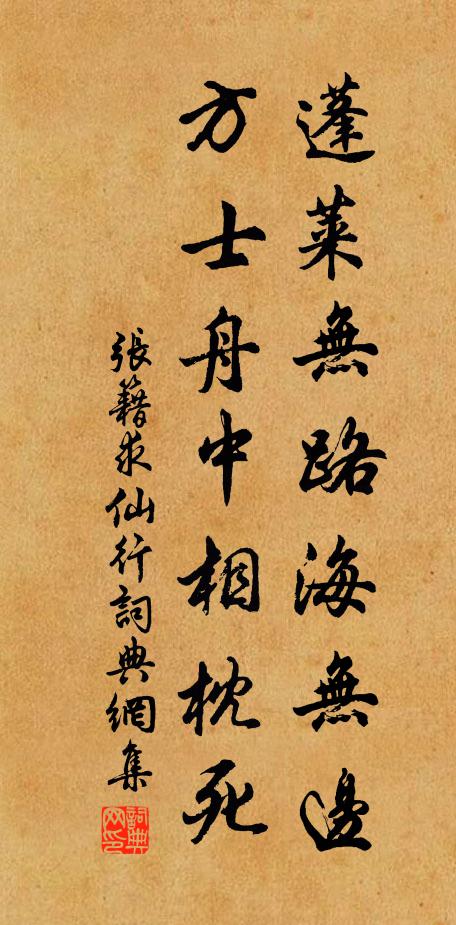 蓬萊無路海無邊
方士舟中相枕死
張籍求仙行詞典網集
詞典網印